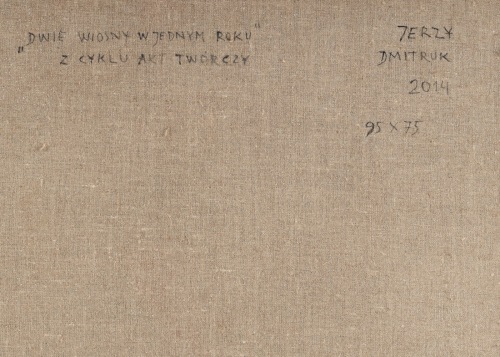 „DWIE WIOSNY W JEDNYM ROKU"
Z CYKLU AKT TWÓRCZY
JERZY
DMITRUK
2014
95 X 75